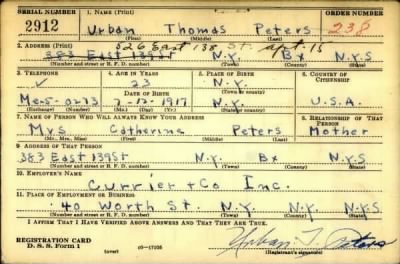 SERIAL NUMBER 1. NAME (Print) ORDER NUMBER
2912 Urban Thomas Peters 238
(First) (Middle) (Last)
2. ADDRESS (Print) 326 East 138 St. apt. 15
383 East 139St N.Y. Bx N.Y.S
(Number and street or R. F. D. number) (Town) (County) (State)
3. TELEPHONE 4. AGE IN YEARS 5. PLACE OF BIRTH 6. COUNTRY OF CITIZENSHIP
23 N.Y.
DATE OF BIRTH (Town or county)
Me-5-0273 7-12-1917 N.Y.S U.S.A.
(Exchange) (Number) (Mo.) (Day) (Yr.) (State or country)
7. NAME OF PERSON WHO WILL ALWAYS KNOW YOUR ADDRESS 8. RELATIONSHIP OF THAT PERSON
Mrs Catherine Peters Mother
(Mr., Mrs., Miss) (First) (Middle) (Last)
9. ADDRESS OF THAT PERSON
383 East 139St N.Y. Bx N.Y.S
(Number and street or R. F. D. number) (Town) (County) (State)
10. EMPLOYER'S NAME
Currier + Co Inc.
11. PLACE OF EMPLOYMENT OR BUSINESS
40 Worth St. N.Y. N.Y. N.Y.S
(Number and street or R. F. D. number) (Town) (County) (State)
I AFFIRM THAT I HAVE VERIFIED ABOVE ANSWERS AND THAT THEY ARE TRUE.
REGISTRATION CARD
D. S. S. Form 1 (over) Urban T. Peters
(Registrant's signature)